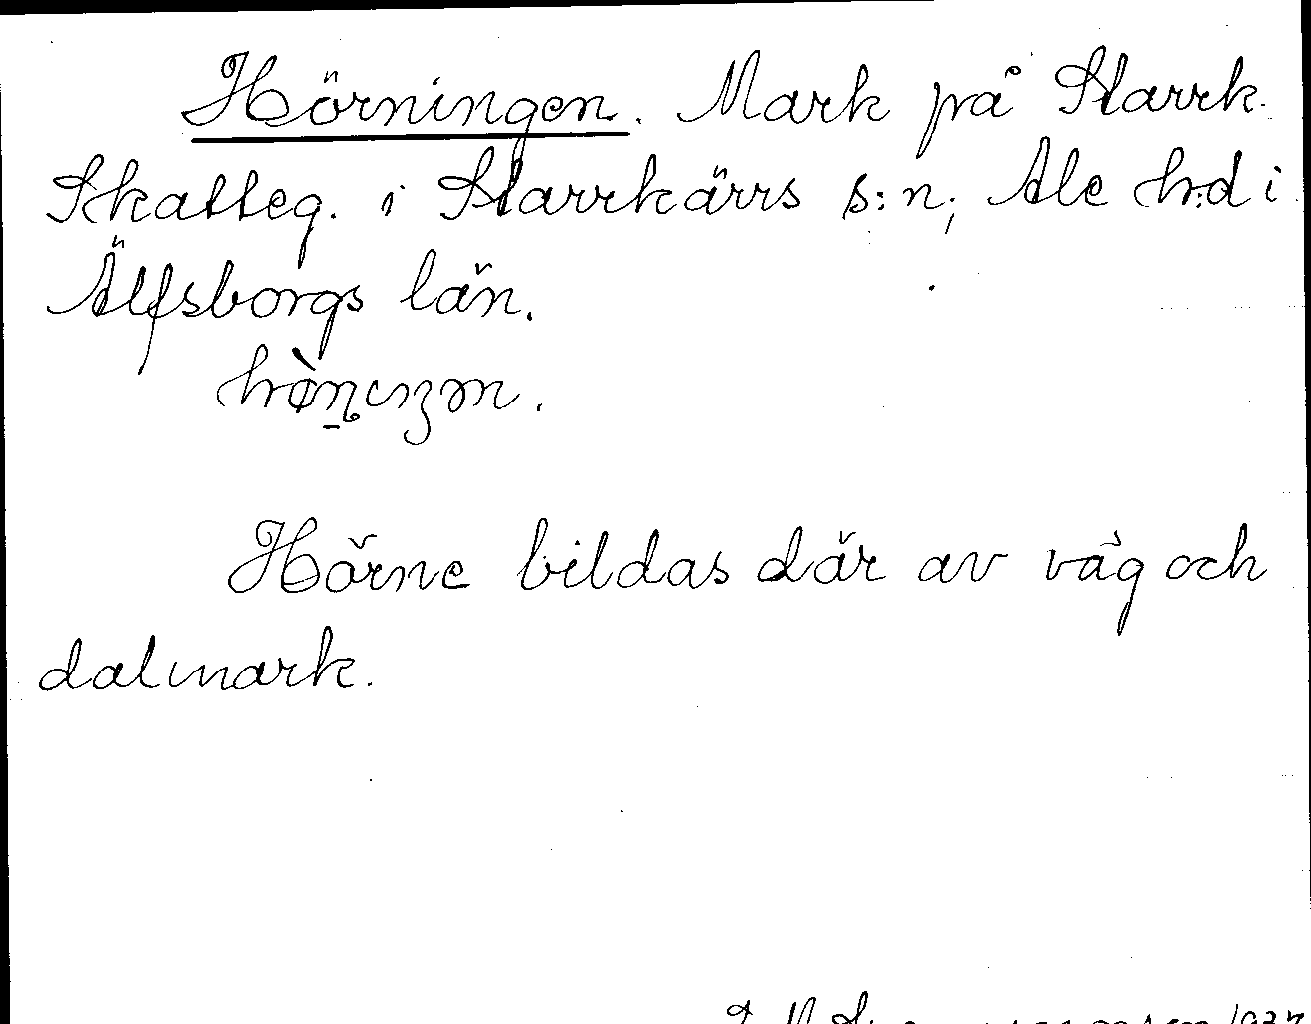 Hörningen. Mark på Starrk.
Skatteg. i Starrkärrs s:n; Ale h:d i
Älfsborgs län.
Hörne bildas där av väg och
dalmark.